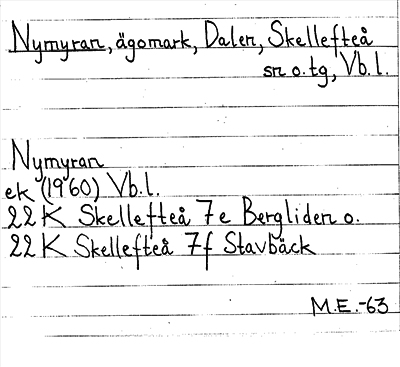 Nymyran, ägomark, Dalen, Skellefteå
sn o. tg, Vb. l.
Nymyran
ek (1960) Vb. l.
22 K Skellefteå 7e Bergliden o.
22 K Skellefteå 7f Stavbäck
M.E.-63